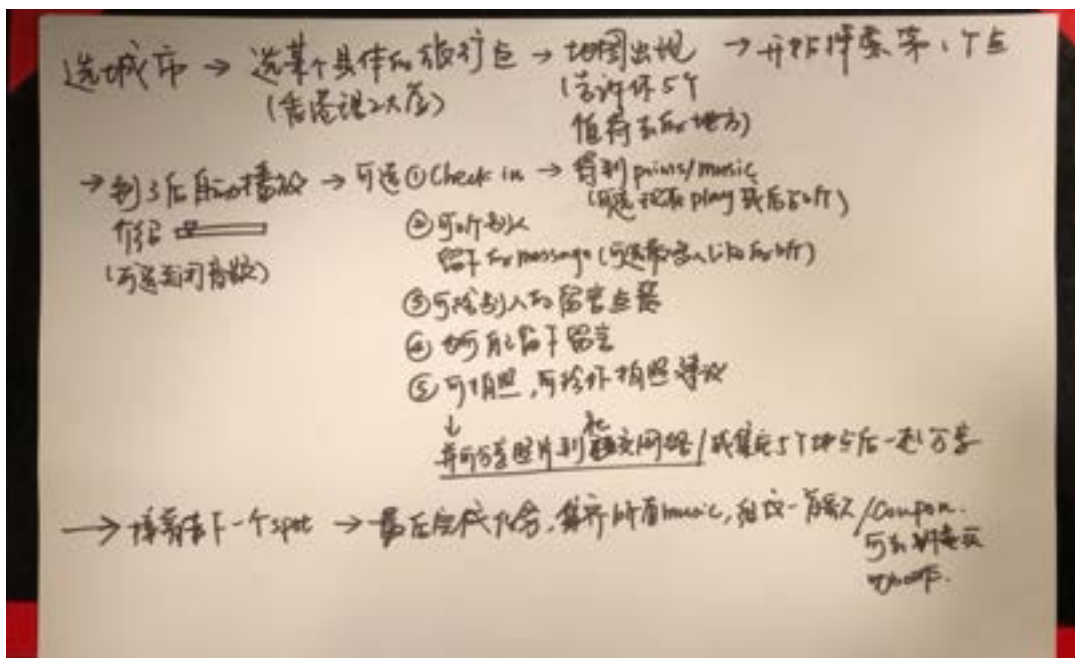 选城市 → 选某个具体的旅行点 → 地图出现 → 开始探索第1个点
(香港理工大学) (告诉你5个
值得去的地方)
→ 到了后自动播放 → 可选 ① Check in → 得到 points/music
介绍 (可选现在 play 或后面听)
(可选关闭音频) ② 可听别人
留下的 message (可选最多人 like 的听)
③ 可给别人的留言点赞
④ 也可自己留下留言
⑤ 可拍照,可给你拍照建议
↓
并可分享照片到社交网络/或集完5个地点后一起分享
→ 接着去下一个 spot → 最后完成任务,集齐所有 music, 组成一首歌 /Coupon.
可去